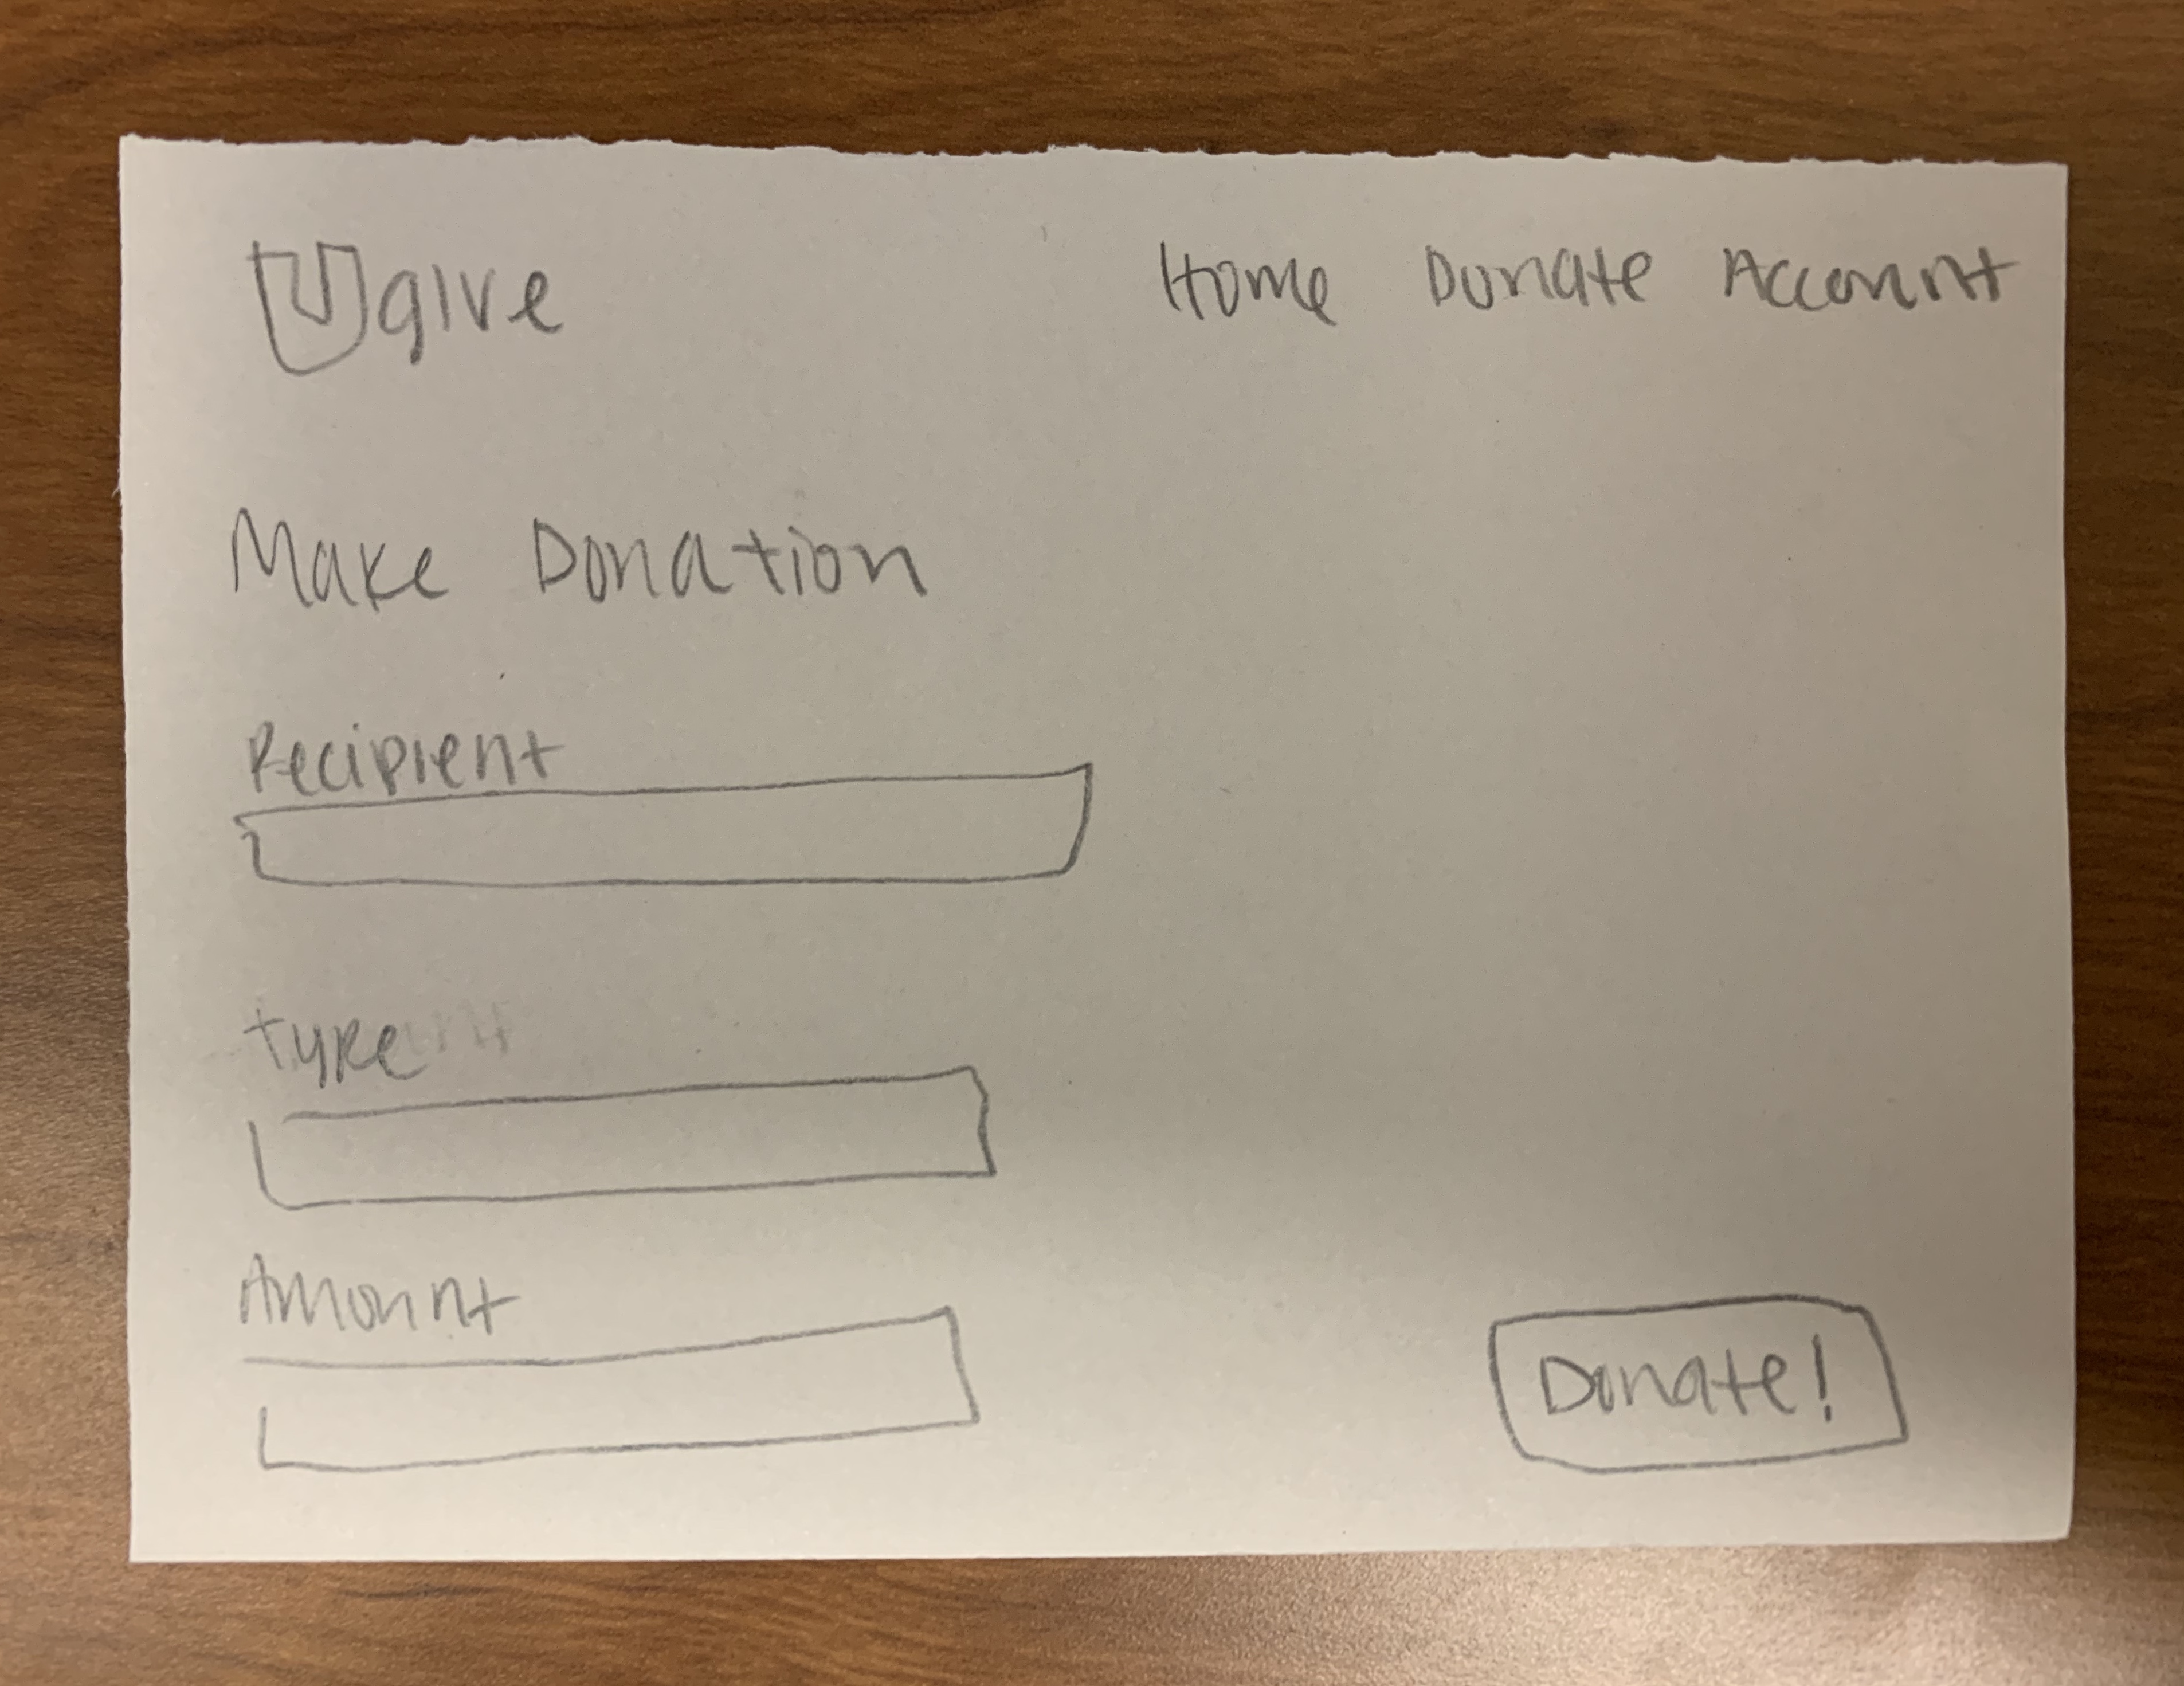 Ugive
Home Donate Account
Make Donation
Recipient
type
Amount
Donate!